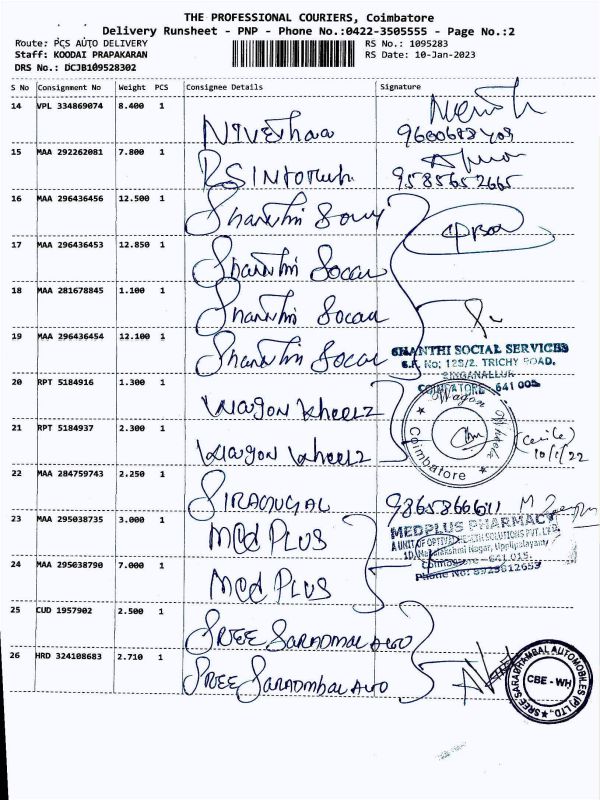 THE PROFESSIONAL COURIERS, Coimbatore
Delivery Runsheet - PNP - Phone No.:0422-3505555 - Page No.:2
Route: PCS AUTO DELIVERY
RS No.: 1095283
Staff: KOODAI PRAPAKARAN
RS Date: 10-Jan-2023
DRS No.: DCJB109528302
S No Consignment No Weight PCS Consignee Details Signature
14 VPL 334869074 8.400 1 Nivethaa
15 MAA 292262081 7.800 1 RS
9585652665
16 MAA 296436456 12.500 1 Shanthi
17 MAA 296436453 12.850 1 Shanthi Social
18 MAA 281678845 1.100 1 Shanthi Social
19 MAA 296436454 12.100 1 Shanthi Social
SHANTHI SOCIAL SERVICES
S.F. No: 128/2, TRICHY ROAD,
SINGANALLUR
COIMBATORE - 641 005
20 RPT 5184916 1.300 1 Wagon Wheelz
21 RPT 5184937 2.300 1 Wagon Wheelz
Wagon Wheels
Coimbatore
10/1/22
22 MAA 284759743 2.250 1
23 MAA 295038735 3.000 1 Med PLUS
MEDPLUS PHARMACY
A UNIT OF OPTIVAL HEALTH SOLUTIONS PVT. LTD.
Nagar, Uppilipalayam
Coimbatore - 641 015
Phone No:
24 MAA 295038790 7.000 1 Med PLUS
25 CUD 1957902 2.500 1 SREE SARADMBAL AUTO
26 HRD 324108683 2.710 1 SREE SARADMBAL AUTO
SREE SARADHAMBAL AUTOMOBILES (P) LTD.,
CBE - WH